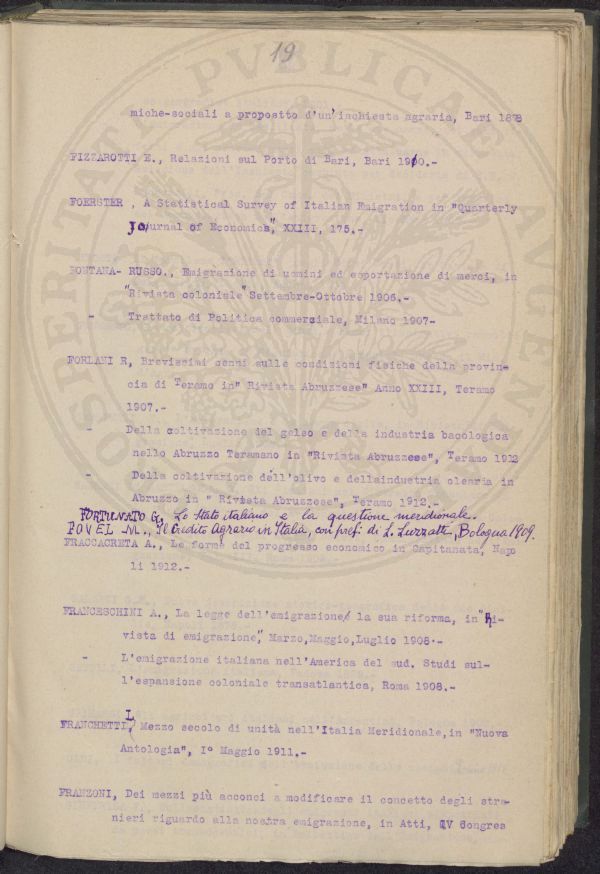 19
miche-sociali a proposito d'un'inchiesta agraria, Bari 1878
FIZZAROTTI E., Relazioni sul Porto di Bari, Bari 1900.-
FOERSTER , A Statistical Survey of Italian Emigration in "Quarterly
Journal of Economics", XXIII, 175.-
FONTANA- RUSSO., Emigrazione di uomini ed esportazione di merci, in
"Rivista coloniale" Settembre-Ottobre 1906.-
- Trattato di Politica commerciale, Milano 1907-
FORLANI R, Brevissimi cenni sulle condizioni fisiche della provin-
cia di Teramo in" Rivista Abruzzese" Anno XXIII, Teramo
1907.-
- Della coltivazione del gelso e della industria bacologica
nello Abruzzo Teramano in "Rivista Abruzzese", Teramo 1912
- Della coltivazione dell'olivo e dellaindustria olearia in
Abruzzo in " Rivista Abruzzese", Teramo 1912.-
FORTUNATO G., Lo Stato italiano e la questione meridionale.
FOVEL M., Il Credito Agrario in Italia, con pref. di L. Luzzatti, Bologna 1909.
FRACCACRETA A., Le forme del progresso economico in Capitanata, Napo
li 1912.-
FRANCESCHINI A., La legge dell'emigrazione la sua riforma, in "Ri-
vista di emigrazione", Marzo,Maggio,Luglio 1908.-
- L'emigrazione italiana nell'America del sud. Studi sul-
l'espansione coloniale transatlantica, Roma 1908.-
FRANCHETTI L, Mezzo secolo di unità nell'Italia Meridionale,in "Nuova
Antologia", I° Maggio 1911.-
FRANZONI, Dei mezzi più acconci a modificare il concetto degli stra-
nieri riguardo alla nostra emigrazione, in Atti, IV Congres
PROSPERITATI PVBLICAE AVGENDAE